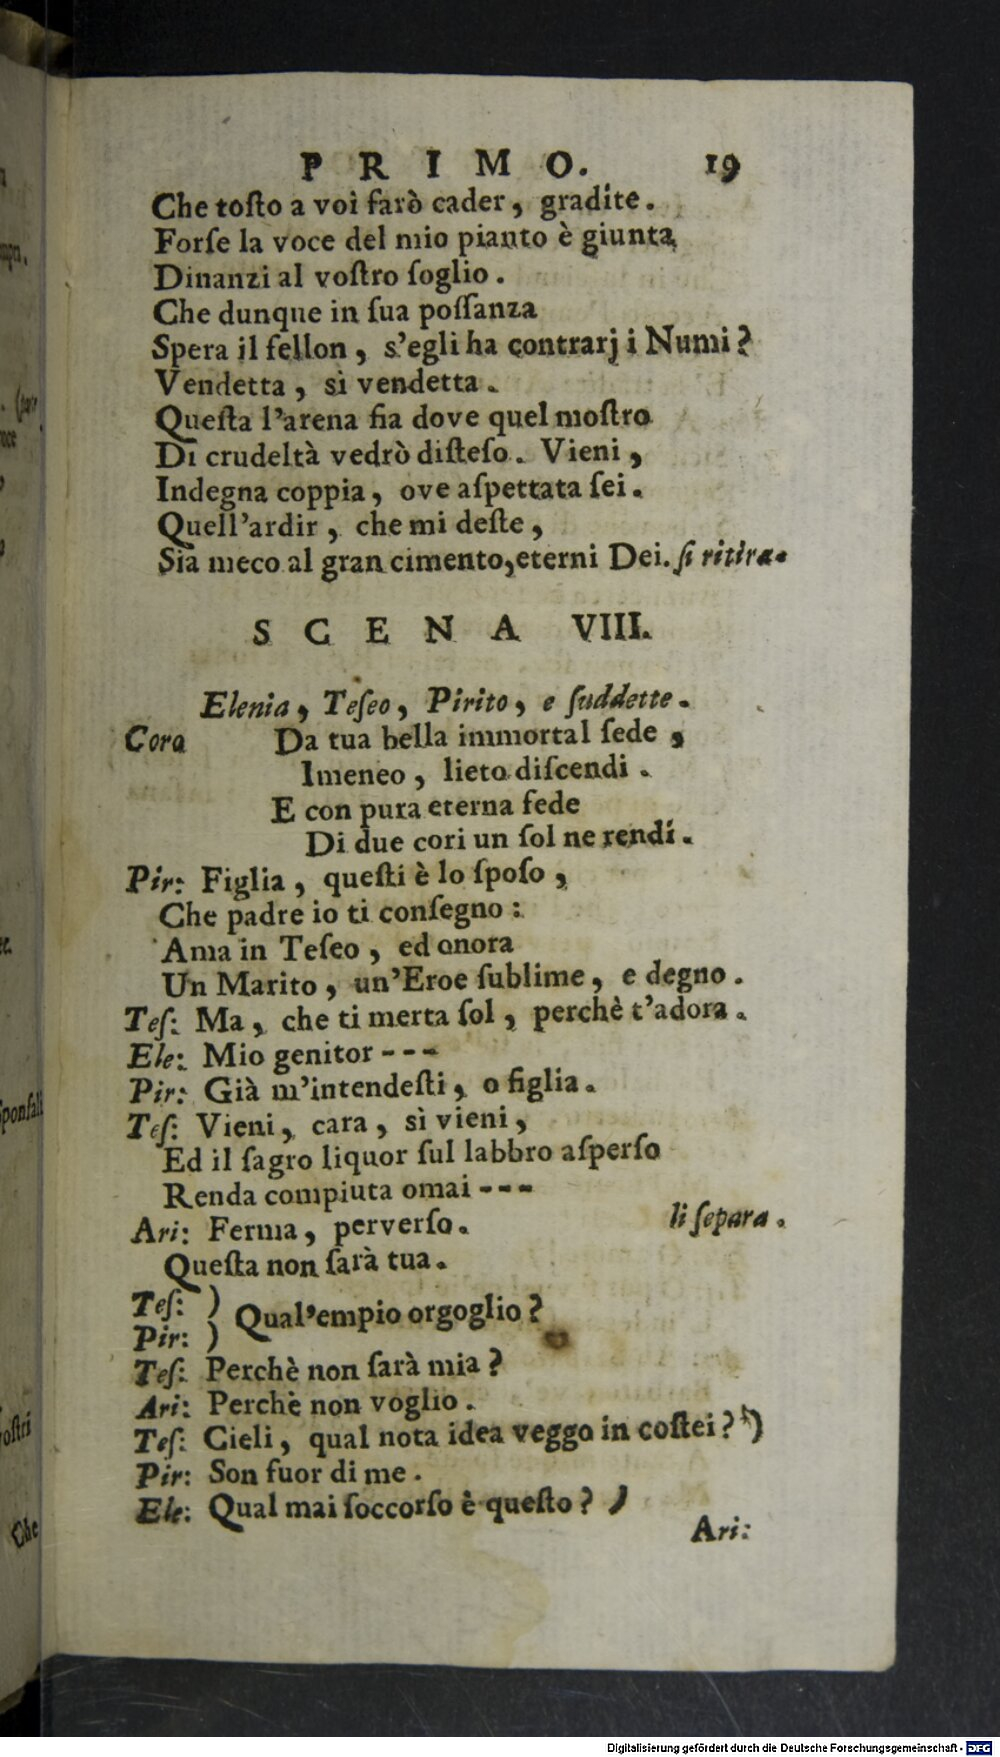 PRIMO. 19
Che toſto a voi farò cader, gradite.
Forſe la voce del mio pianto è giunta
Dinanzi al voſtro ſoglio.
Che dunque in ſua poſſanza
Spera il fellon, s'egli ha contrarj i Numi?
Vendetta, sì vendetta.
Queſta l'arena fia dove quel moſtro
Di crudeltà vedrò diſteſo. Vieni,
Indegna coppia, ove aſpettata ſei.
Quell'ardir, che mi deſte,
Sia meco al gran cimento, eterni Dei. ſi ritira.
SCENA VIII.
Elenia, Teſeo, Pirito, e ſuddette.
Coro Da tua bella immortal ſede,
Imeneo, lieto diſcendi.
E con pura eterna fede
Di due cori un ſol ne rendi.
Pir: Figlia, queſti è lo ſpoſo,
Che padre io ti conſegno:
Ama in Teſeo, ed onora
Un Marito, un'Eroe ſublime, e degno.
Teſ: Ma, che ti merta ſol, perchè t'adora.
Ele: Mio genitor ---
Pir: Già m'intendeſti, o figlia.
Teſ: Vieni, cara, sì vieni,
Ed il ſagro liquor ſul labbro aſperſo
Renda compiuta omai ---
Ari: Ferma, perverſo. li ſepara.
Queſta non ſarà tua.
Teſ: )
Pir: ) Qual'empio orgoglio?
Teſ: Perchè non ſarà mia?
Ari: Perchè non voglio.
Teſ: Cieli, qual nota idea veggo in coſtei? )
Pir: Son fuor di me.
Ele: Qual mai ſoccorſo è queſto? )
Ari:
Digitalisierung gefördert durch die Deutsche Forschungsgemeinschaft - DFG